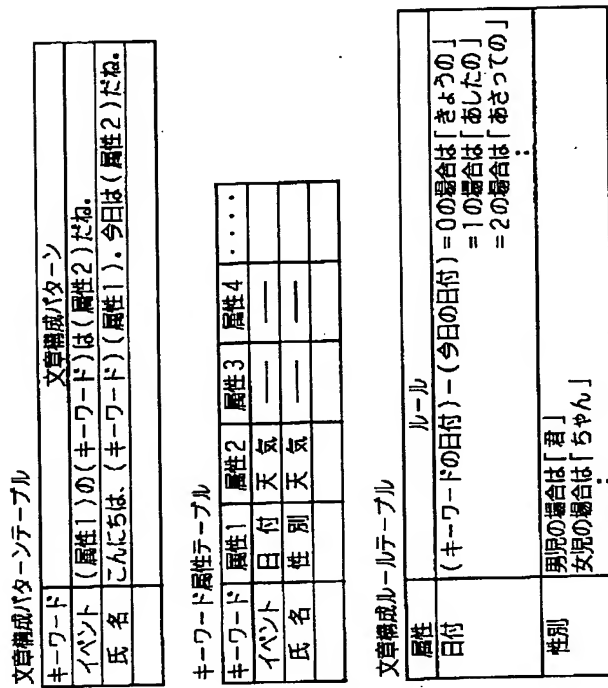 文章構成パターンテーブル
キーワード 文章構成パターン
イベント (属性1)の(キーワード)は(属性2)だね。
氏 名 こんにちは、(キーワード)(属性1)。今日は(属性2)だね。
キーワード属性テーブル
キーワード 属性1 属性2 属性3 属性4 ‥‥
イベント 日 付 天 気 ── ──
氏 名 性 別 天 気 ── ──
文章構成ルールテーブル
属性 ルール
日付 (キーワードの日付)−(今日の日付)=0の場合は「きょうの」
=1の場合は「あしたの」
=2の場合は「あさっての」
⋮
性別 男児の場合は「君」
女児の場合は「ちゃん」
⋮